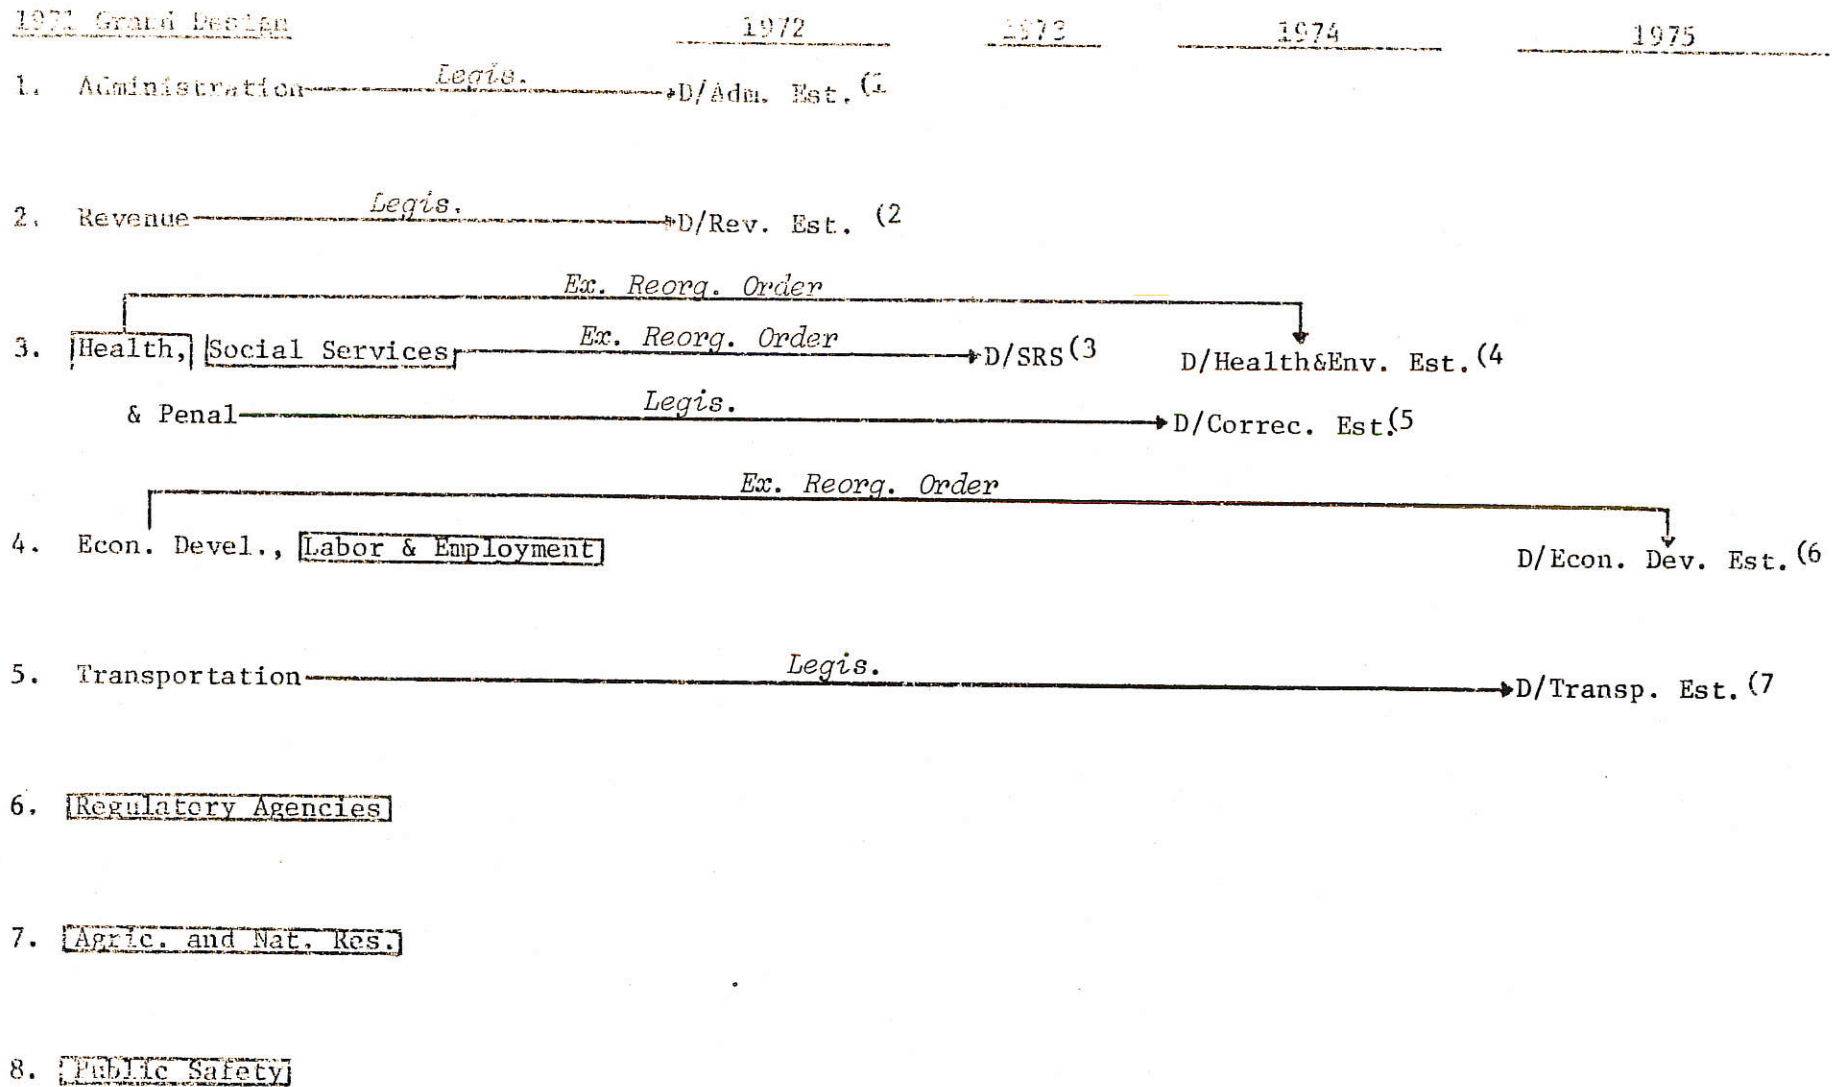 1971 Grand Design 1972 1973 1974 1975
1. Administration Legis. D/Adm. Est. (1
2. Revenue Legis. D/Rev. Est. (2
Ex. Reorg. Order
3. Health, Social Services Ex. Reorg. Order D/SRS(3 D/Health&Env. Est.(4
& Penal Legis. D/Correc. Est.(5
Ex. Reorg. Order
4. Econ. Devel., Labor & Employment D/Econ. Dev. Est.(6
5. Transportation Legis. D/Transp. Est.(7
6. Regulatory Agencies
7. Agric. and Nat. Res.
8. Public Safety